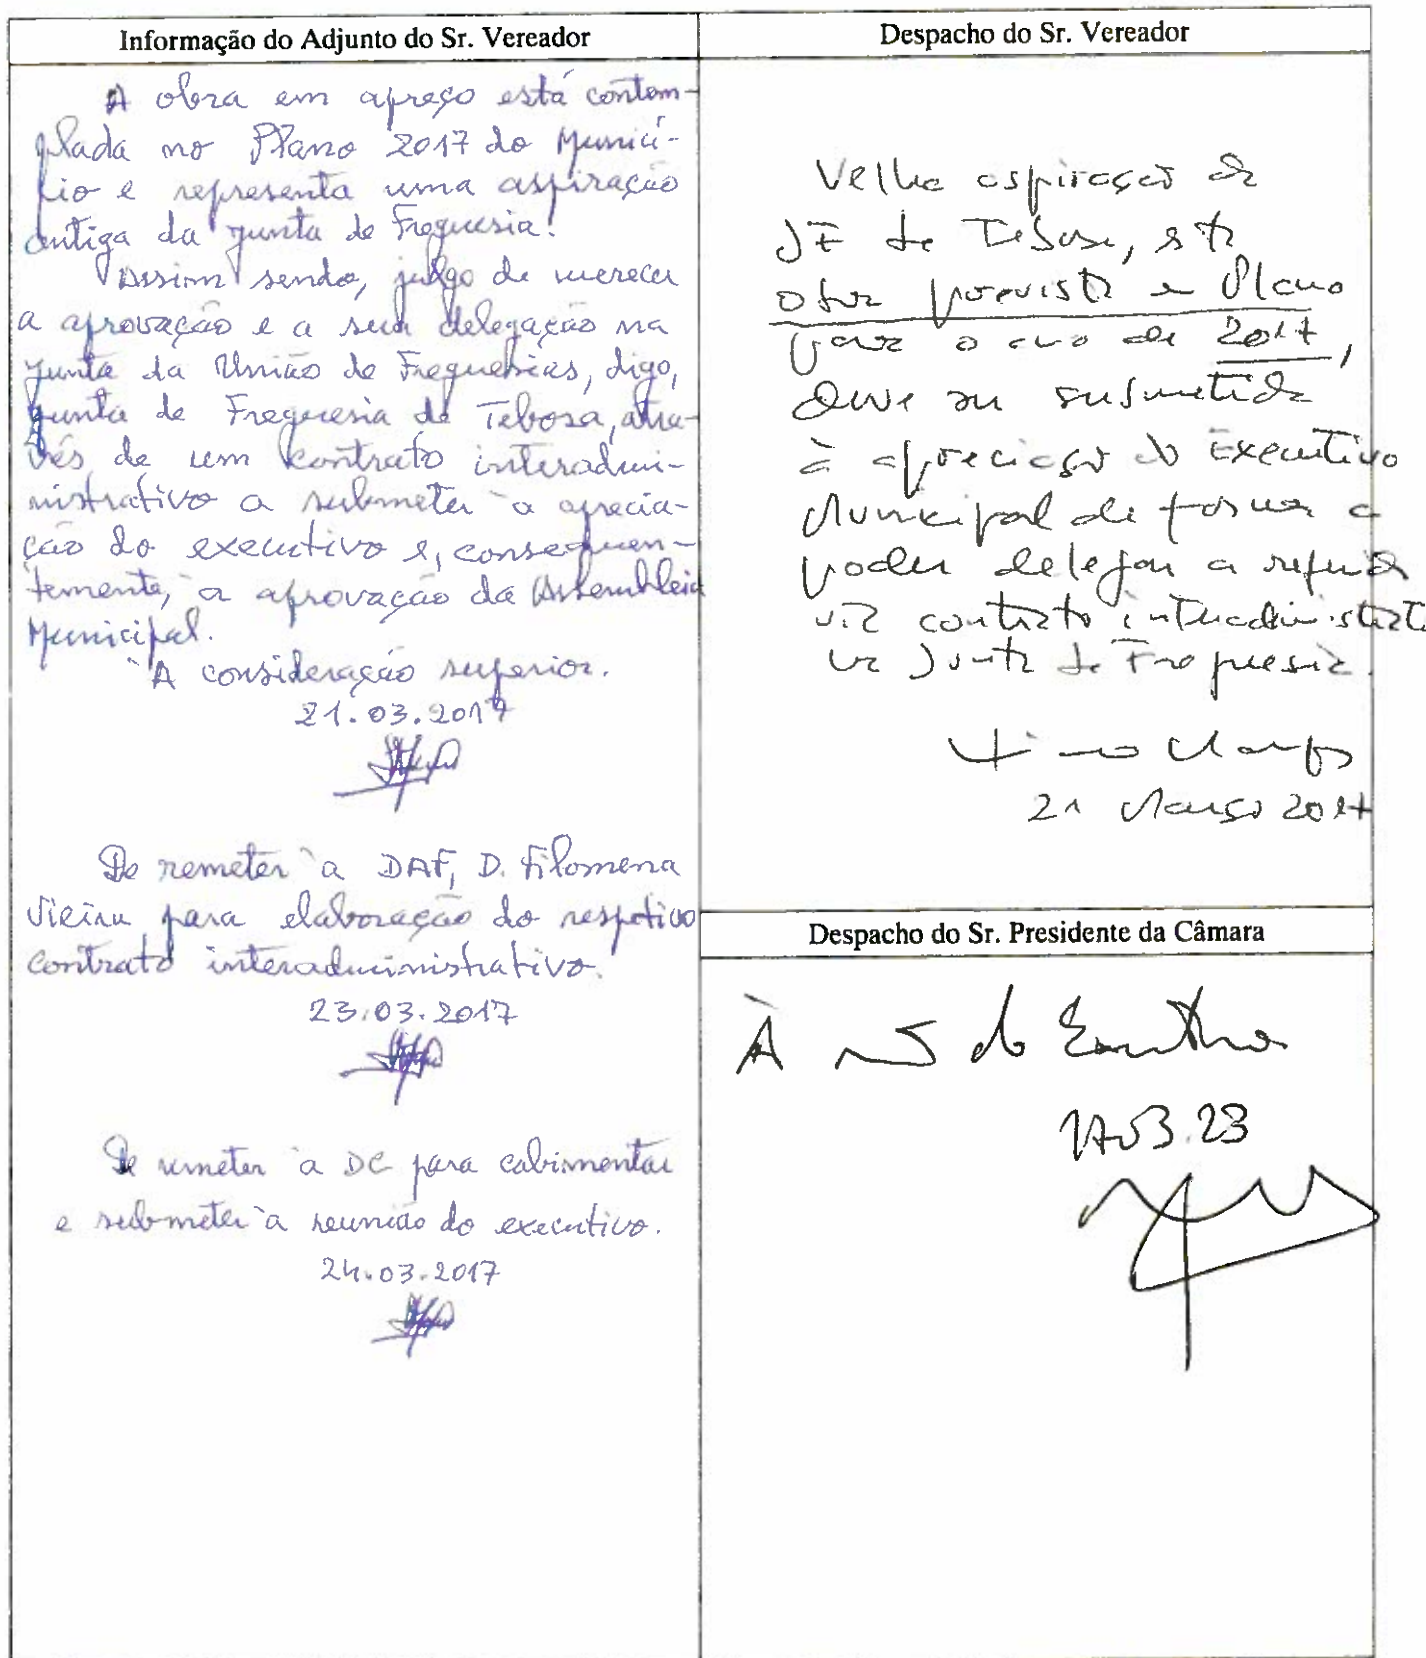 Informação do Adjunto do Sr. Vereador
A obra em apreço está contem-
plada no Plano 2017 do Municí-
pio e representa uma aspiração
antiga da Junta de Freguesia.
Assim sendo, julgo de merecer
a aprovação e a sua delegação na
Junta da União de Freguesias, digo,
Junta de Freguesia de Tebosa, atra-
vés de um contrato interadmi-
nistrativo a submeter à aprecia-
ção do executivo e, consequen-
temente, à aprovação da Assembleia
Municipal.
À consideração superior.
21.03.2017
De remeter à DAF, D. Filomena
Vieira para elaboração do respetivo
contrato interadministrativo.
23.03.2017
De remeter à DC para cabimentar
e submeter à reunião do executivo.
24.03.2017
Despacho do Sr. Vereador
Velha aspiração da
JF de Tebosa, esta
obra prevista em Plano
para o ano de 2017,
deve ser submetida
à apreciação do Executivo
Municipal de forma a
poder delegar a referida
via contrato interadministrat
na Junta de Freguesia.
21 Março 2017
Despacho do Sr. Presidente da Câmara
À do
17.03.23